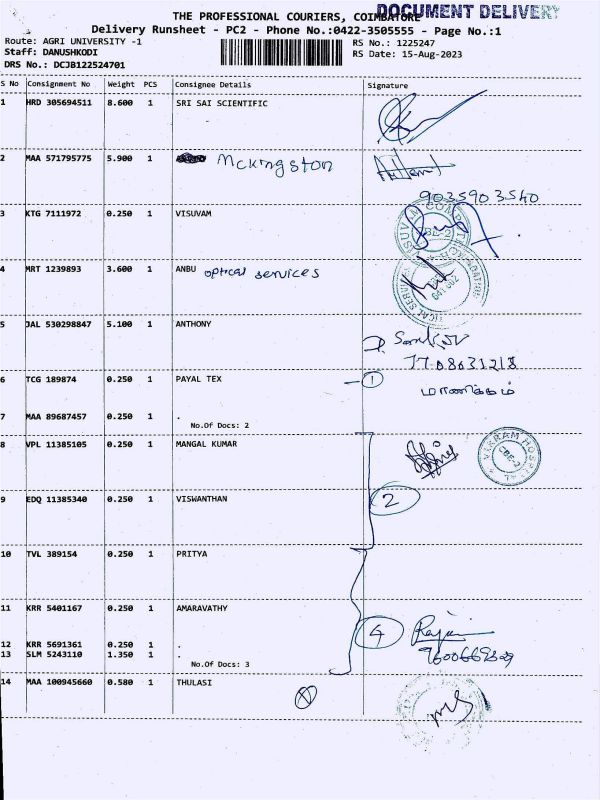 DOCUMENT DELIVERY
THE PROFESSIONAL COURIERS, COIMBATORE
Delivery Runsheet - PC2 - Phone No.:0422-3505555 - Page No.:1
Route: AGRI UNIVERSITY -1
RS No.: 1225247
Staff: DANUSHKODI
RS Date: 15-Aug-2023
DRS No.: DCJB122524701
S No Consignment No Weight PCS Consignee Details Signature
1 HRD 305694511 8.600 1 SRI SAI SCIENTIFIC
2 MAA 571795775 5.900 1 Mckingston
9035903540
3 KTG 7111972 0.250 1 VISUVAM
4 MRT 1239893 3.600 1 ANBU optical services
5 JAL 530298847 5.100 1 ANTHONY
7708631218
6 TCG 189874 0.250 1 PAYAL TEX 1
மாணிக்கம்
7 MAA 89687457 0.250 1 .
No.Of Docs: 2
8 VPL 11385105 0.250 1 MANGAL KUMAR
VIKRAM HOSPITAL CBE-2
9 EDQ 11385340 0.250 1 VISWANTHAN 2
10 TVL 389154 0.250 1 PRITYA
11 KRR 5401167 0.250 1 AMARAVATHY
4 Rajan
12 KRR 5691361 0.250 1 .
13 SLM 5243110 1.350 1 .
No.Of Docs: 3
14 MAA 100945660 0.580 1 THULASI